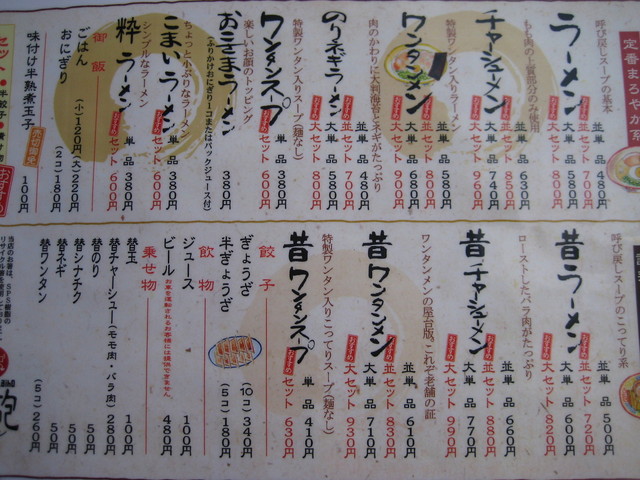 定番まろやか
呼び戻しスープの基本
ラーメン
並単品 480円
大単品 580円
おすすめ 並セット 700円
おすすめ 大セット 800円
もも肉の上質部分のみ使用
チャーシューメン
並単品 640円
大単品 740円
おすすめ 並セット 860円
おすすめ 大セット 960円
特製ワンタン入りラーメン
ワンタンメン
並単品 580円
大単品 680円
おすすめ 並セット 800円
おすすめ 大セット 900円
肉のかわりに大判海苔とネギがたっぷり
のりネギラーメン
並単品 480円
大単品 580円
おすすめ 並セット 700円
おすすめ 大セット 800円
特製ワンタン入りスープ(麺なし)
ワンタンスープ
単品 380円
おすすめ セット 600円
楽しいお顔のトッピング
おこさまラーメン
380円
(ふりかけおにぎり1コまたはパックジュース付)
ちょっと小ぶりなラーメン
こまいラーメン
単品 380円
おすすめ セット 600円
シンプルなラーメン
粋ラーメン
単品 380円
おすすめ セット 600円
御飯
ごはん
(小)120円(大)220円
おにぎり
(2コ)180円
味付け半熟煮玉子
100円
呼び戻しスープのこってり系
昔ラーメン
並単品 500円
大単品 600円
おすすめ 並セット 720円
おすすめ 大セット 820円
ローストしたバラ肉がたっぷり
昔チャーシューメン
並単品 660円
大単品 770円
おすすめ 並セット 880円
おすすめ 大セット 990円
ワンタンメンの屋台版、これぞ老舗の証
昔ワンタンメン
並単品 610円
大単品 710円
おすすめ 並セット 830円
おすすめ 大セット 930円
特製ワンタン入りこってりスープ(麺なし)
昔ワンタンスープ
単品 410円
おすすめ セット 630円
餃子
ぎょうざ
(10コ)340円
半ぎょうざ
(5コ)180円
飲物
ジュース
100円
ビール
480円
お車を運転されるお客様には提供できません
乗せ物
替玉
100円
替チャーシュー(モモ肉・バラ肉)
280円
替のり
50円
替シナチク
50円
替ネギ
50円
替ワンタン
(5コ)260円